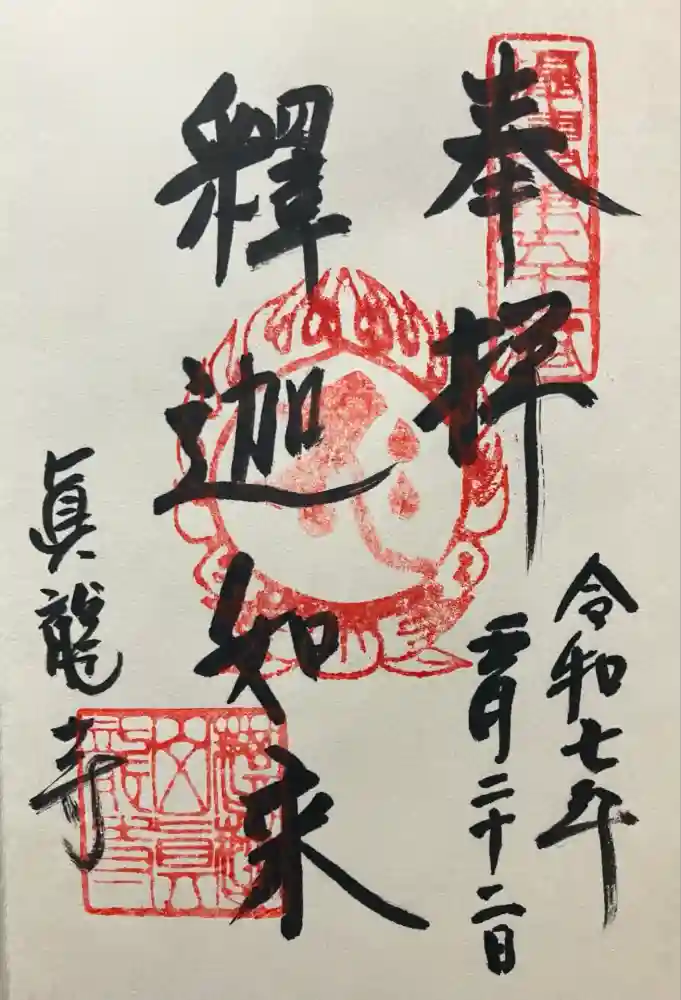 奉拝
令和七年
月二十二日
釋迦如来
眞龍寺